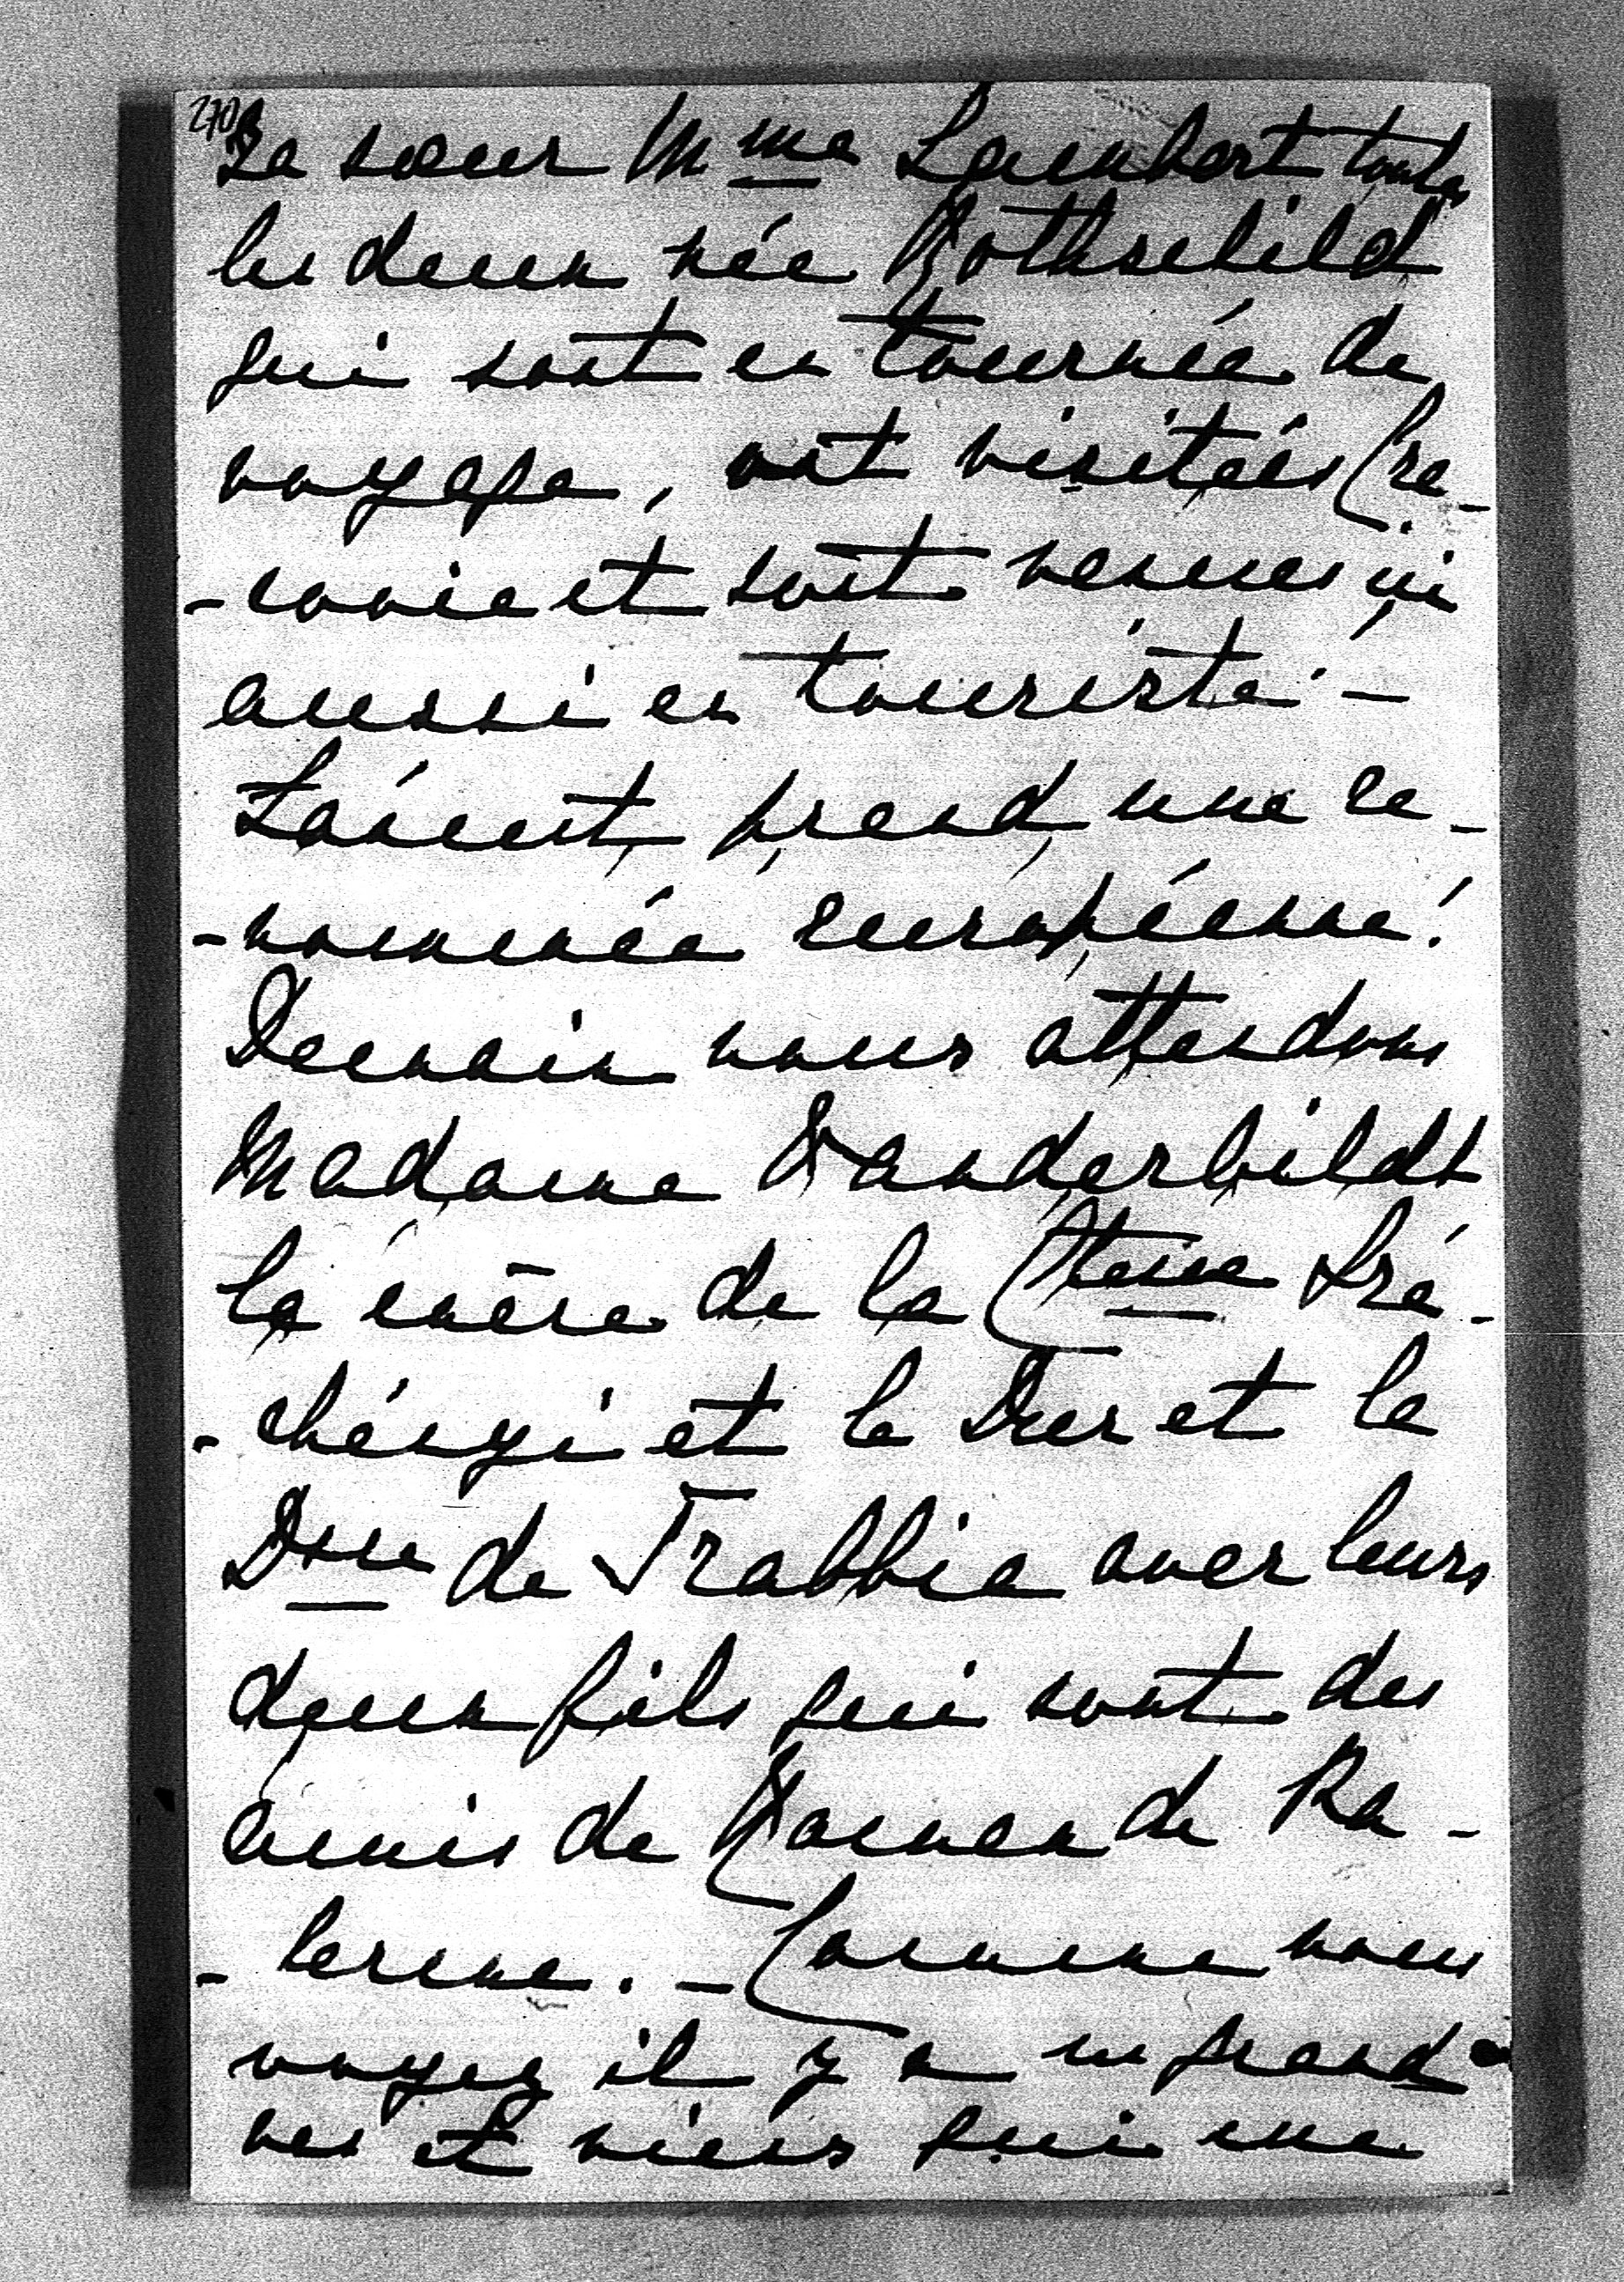 270
Sa sœur Mme Lambert toutes
les deux née Rothschild
qui sont en tournée de
voyage, ont visitées Cra-
-covie et sont venues ici
aussi en touriste –
Lancut prend une re-
-nommée européenne!
Demain nous attendons
Madame Vanderbildt
la mère de la Ctesse Szé-
-chényi et le Duc et la
Dsse de Trabbia avec leurs
deux fils qui sont des
amis de Roman de Pa-
-lerme. – Comme vous
voyez il y a un grand
va et viens qui me